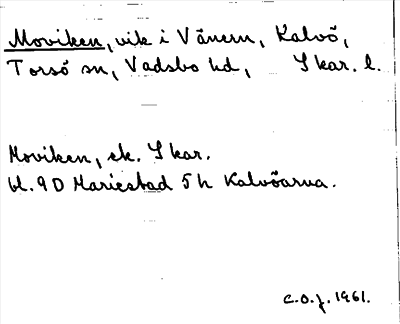 Moviken, vik i Vänern, Kalvö,
Torsö sn, Vadsbo hd, Skar. l.
Moviken, ek. Skar.
bl. 9D Mariestad 5 h Kalvöarna.
C.O.J. 1961.